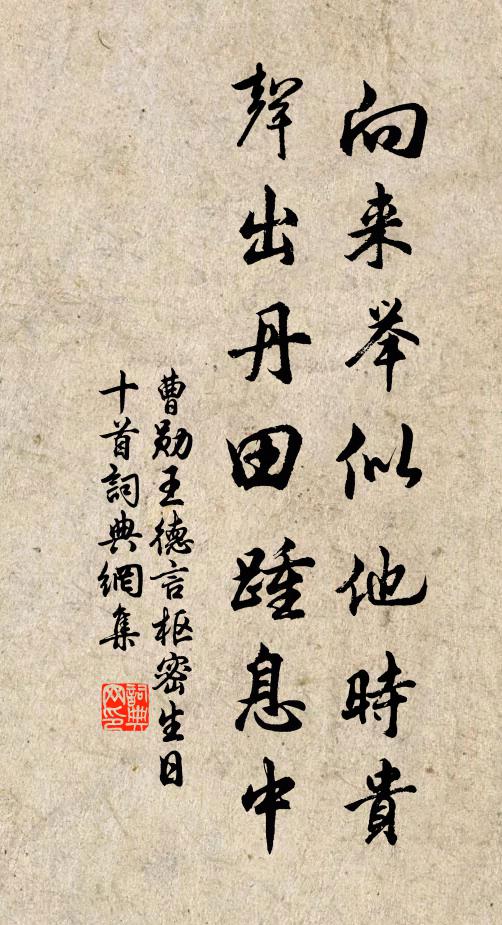 向来举似他時貴
聲出丹田踵息中
曹勛王德言枢密生日
十首詞典網集
詞典网印